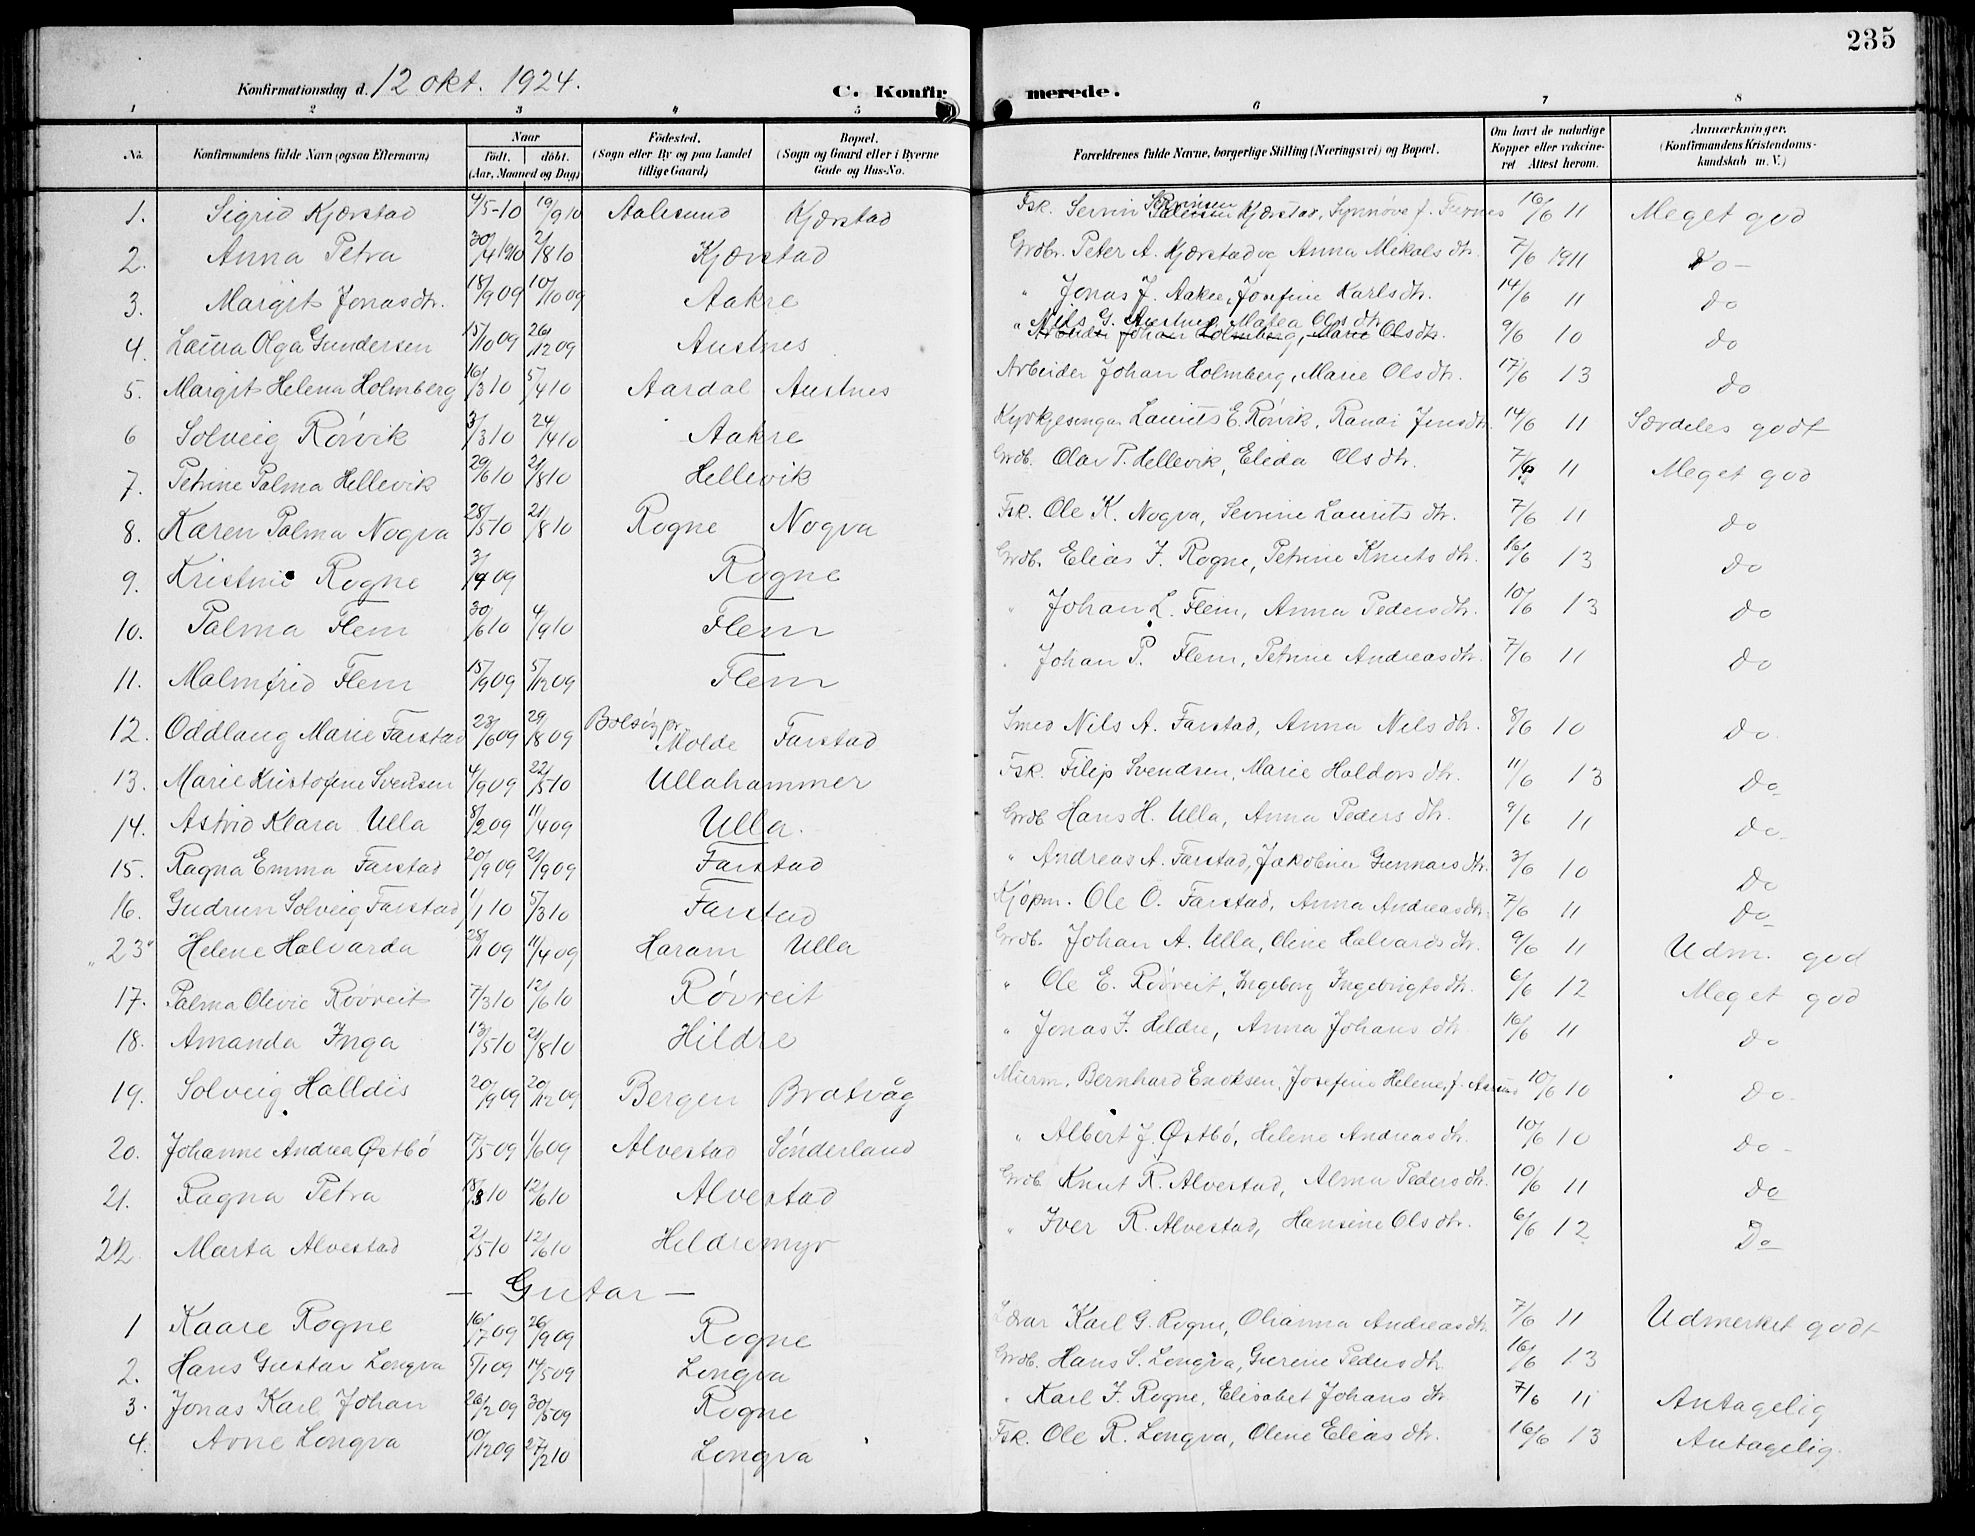 235
Konfirmationsdag d. 12 okt. 1924. C. Konfirmerede.
1 2 3 4 5 6 7 8
No. Konfirmandens fulde Navn (ogsaa Efternavn) Naar født. døbt. (Aar, Maaned og Dag) Fødested. (Sogn eller By og paa Landet tillige Gaard) Bopæl. (Sogn og Gaard eller i Byerne Gade og Hus-No. Forældrenes fulde Navne, borgerlige Stilling (Næringsvei) og Bopæl. Om havt de naturlige Kopper eller vakcineret Attest herom. Anmærkninger. (Konfirmandens Kristendomskundskab m. V.)
1. Sigrid Kjærstad 4/5-10 19/9 10 Aalesund Kjærstad Fsk. Severin Sørensen Kjærstad, Synnøve f. Furnes 16/6 11 Meget god
2. Anna Petra 30/4 1910 2/8 10 Kjærstad Grdbr. Peter A. Kjærstad og Anna Mekals dtr. 7/6 1911 Do-
3. Margit Jonasdtr. 18/9 09 10/10 09 Aakre " Jonas J. Aakre, Josefine Karlsdtr. 14/6 11 do
4. Laura Olga Gundersen 15/10 09 26/12 09 Austnes " Nils G. Austnes, Matea Olsdtr. Arbeider Johan Holmberg, Marie Olsdtr. 9/6 10 do
5. Margit Helena Holmberg 16/3 10 5/4 10 Aardal Austnes Arbeider Johan Holmberg, Marie Olsdtr. 17/6 13 do
6 Solveig Rørvik 3/3 10 24/4 10 Aakre Kyrkjesongar Laurits E. Rørvik, Ranai Jensdtr. 14/6 11 Særdeles godt
7. Petrine Palma Hellevik 29/6 10 21/8 10 Hellevik Grdb. Olav P. Hellevik, Elida Olsdtr. 7/6 11 Meget god
8. Karen Palma Nogva 28/5 10 21/8 10 Rogne Nogva Fsk. Ole K. Nogva, Severine Laurits dtr. 7/6 11 do
9. Kristine Rogne 3/4 09 Rogne Grdb. Elias J. Rogne, Petrine Knuts dtr. 16/6 13 do
10. Palma Flem 30/6 10 4/9 10 Flem " Johan L. Flem, Anna Peders dtr. 10/6 13 do
11. Malmfrid Flem 15/9 09 5/12 09 Flem " Johan P. Flem, Petrine Andreas dtr. 7/6 11 do
12. Oddlaug Marie Farstad 23/6 09 29/8 09 Bolsøy pr. Molde Farstad Smed Nils A. Farstad, Anna Nils dtr. 8/6 10 do
13. Marie Kristofine Svensen 4/9 09 22/5 10 Ullahammer Fsk. Filip Svendsen, Marie Haldors dtr. 11/6 13 do
14. Astrid Klara Ulla 8/2 09 11/4 09 Ulla. Grdb. Hans H. Ulla, Anna Peders dtr. 9/6 11 do
15. Ragna Emma Farstad 20/9 09 21/9 09 Farstad " Andreas A. Farstad, Jakobine Gunnars dtr. 3/6 10 do
16. Gudrun Solveig Farstad 1/1 10 5/3 10 Farstad Kjøpm. Ole O. Farstad, Anna Andreas dtr. 7/6 11 do
"23" Helene Halvarda 28/1 09 11/4 09 Haram Ulla Grdb. Johan A. Ulla, Oline Halvards dtr. 9/6 11 Udm. god
17. Palma Olevie Røvreit 7/3 10 12/6 10 Røvreit " Ole E. Røvreit, Ingeborg Ingebrigts dtr. 6/6 12 Meget god
18. Amanda Inga 13/5 10 21/8 10 Hildre " Jonas J. Hildre, Anna Johans dtr. 16/6 11 do
19. Solveig Halldis 20/9 09 20/12 09 Bergen Bratvåg Murm. Bernhard Enoksen, Josefine Helene, f. 10/6 10 do
20. Johanne Andrea Østbø 17/5-09 1/6 09 Alvestad Sønderland " Albert J. Østbø, Helene Andreas dtr. 10/6 10 do-
21. Ragna Petra 18/3 10 12/6 10 Alvestad Grdb. Knut R. Alvestad, Alma Peders dtr. 10/6 11 do
22. Marta Alvestad 2/5 10 12/6 10 Hildremyr " Iver R. Alvestad, Hansine Olsdtr. 6/6 12 Do
- Gutar -
1 Kaare Rogne 16/7 09 26/9 09 Rogne Lærar Karl G. Rogne, Olianna Andreas dtr. 7/6 11 Udmerket godt
2. Hans Gustav Longva 5/1 09 14/5 09 Longva Grdb. Hans S. Longva, Gurine Peders dtr. 16/6 13
3. Jonas Karl Johan 26/2 09 30/5 09 Rogne " Karl J. Rogne, Elisabet Johans dtr 7/6 11 Antagelig
4. Arne Longva 10/12 09 27/2 10 Longva Fsk. Ole R. Longva, Oline Elias dtr. 16/6 13 Antagelig.